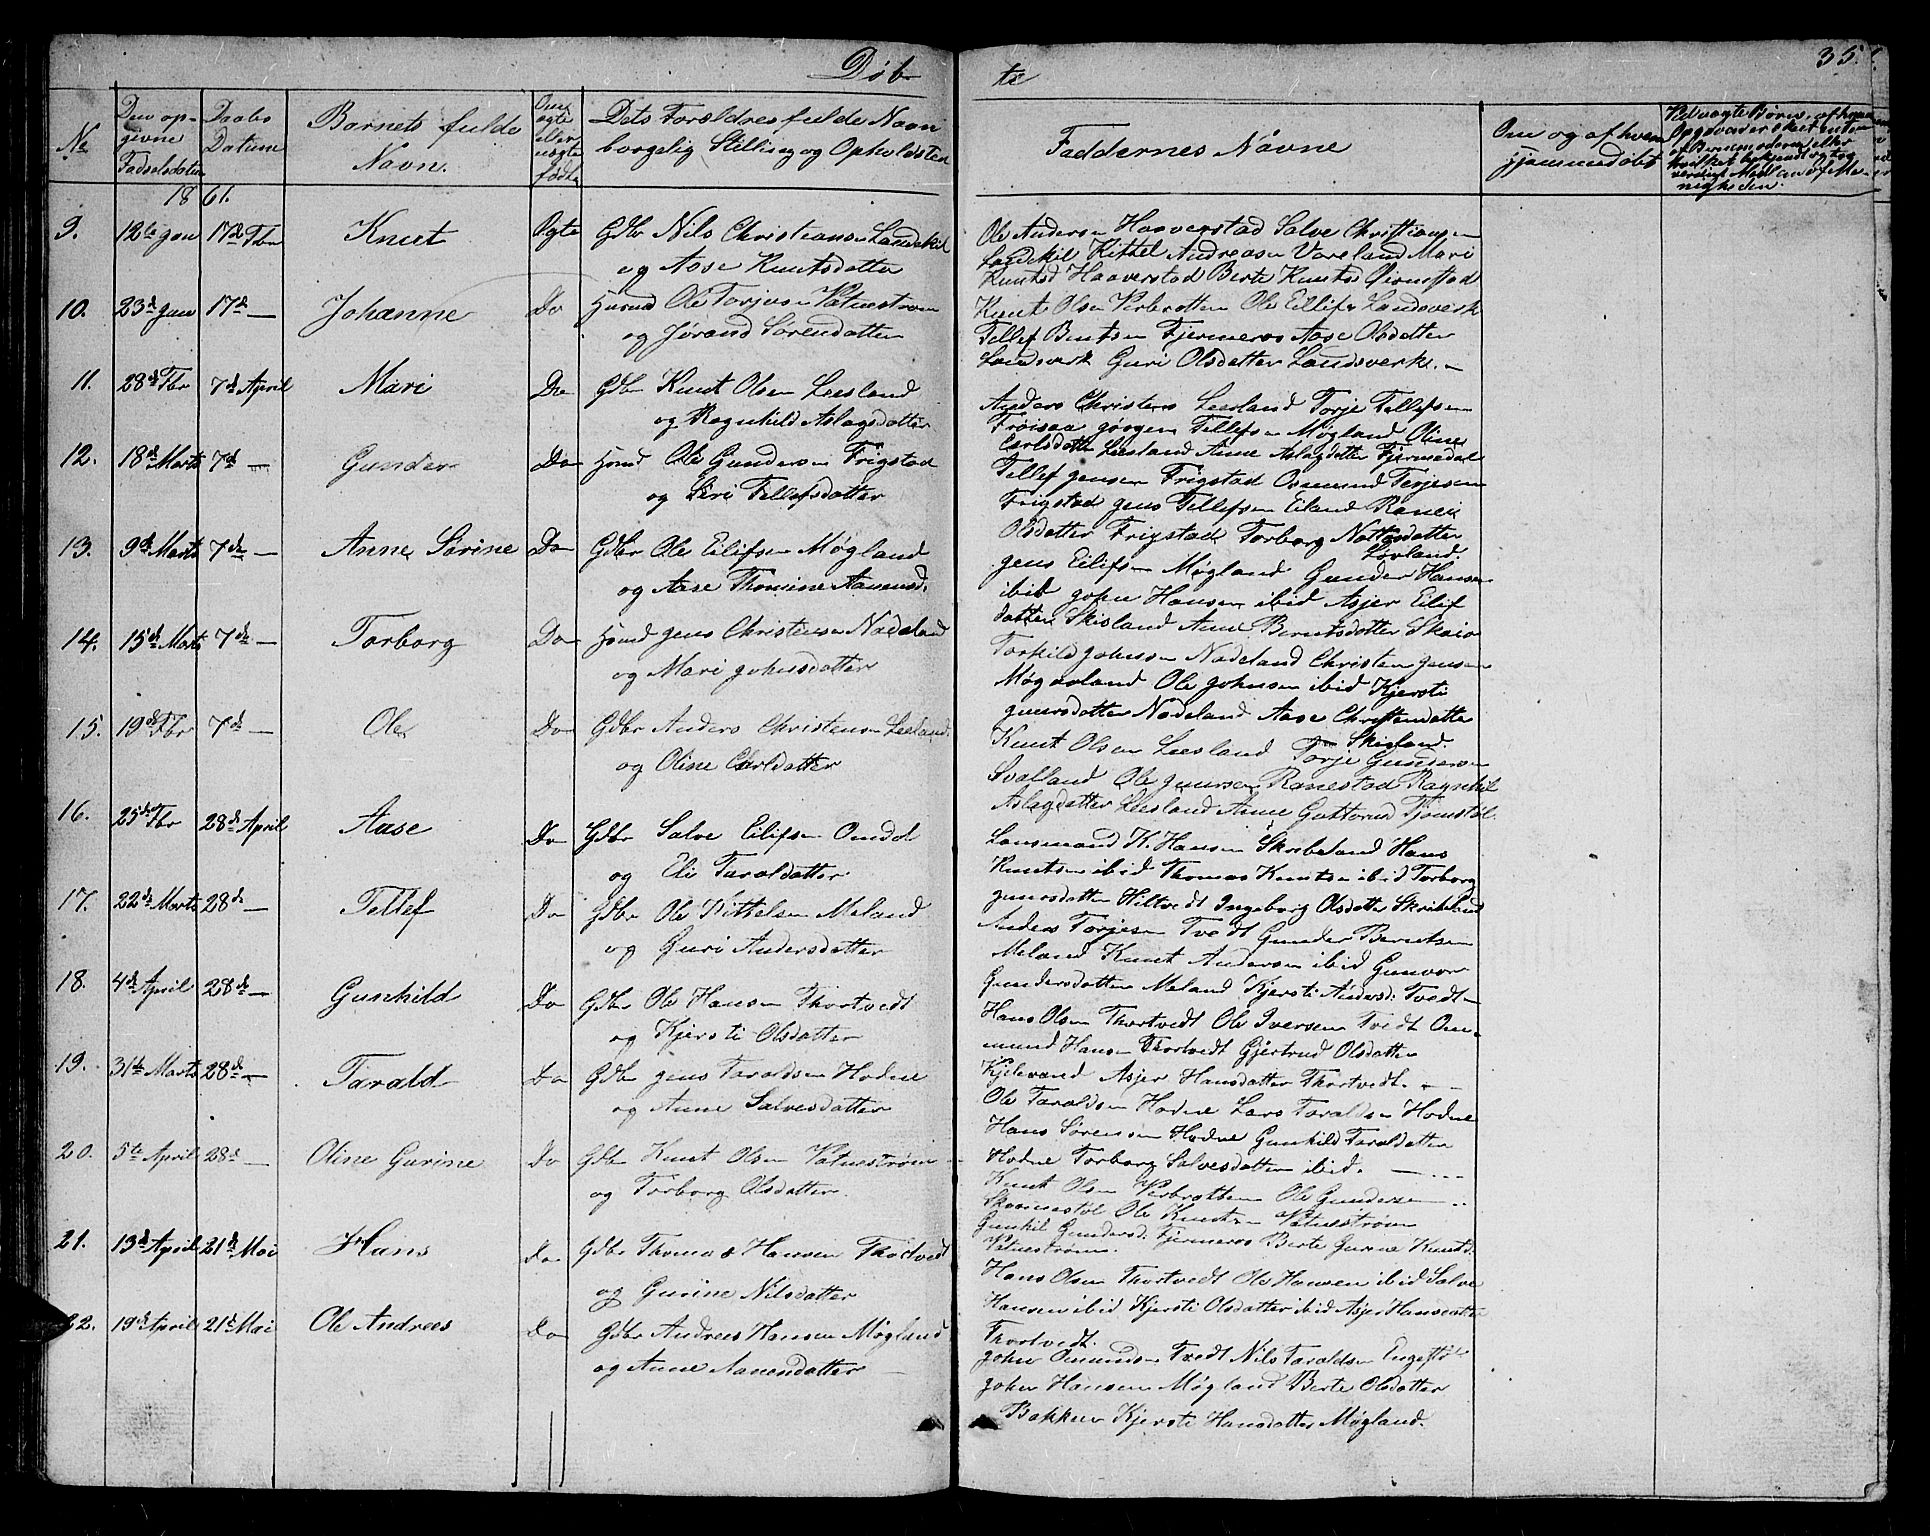 Døb-
te
35.
No
Den op-
givne
Fødselsdatum
Daabs
Datum
Barnets fulde
Navn.
Om
ægte
eller
uægte
født
Dets Forældres fulde Navn
borgelig Stilling og Opholdsted
Faddernes Navne
Om og af hvem
hjemmedøbt
1861.
9. 12te Jan 17de Fbr Knut Ægte Gdbr Nils Christiansen Landskil
og Aase Knutsdatter
Ole Andersen Haaverstad Salve Christiansen
Landskil Kittel Andreasen Vareland Mari
Knutsd Haaverstad Berte Knutsd
10. 23de Jan 17de — Johanne Do Husmd Ole Torjusen Vatnestrøm
og Jørand Sørensdatter
Knut Olsen Verbrotten Ole Eilifs Landsverk
Tellef Bentsen Fjermeros Aase Olsdatter
Landsverk Guri Olsdatter Landsverk. —
11. 28de Fbr 7de April Mari Do Gdbr Knut Olsen Leesland
og Ragnhild Aslagsdatter
Anders Christens Leesland Torje Tellefsen
Frøisaa Jørgen Tellefsen Møgland Oline
Carlsdatter Leesland Anne Aslagdatter Fjermedal
12. 18de Marts 7de — Gunder Do Husmd Ole Gundersen Frigstad
og Siri Tellefsdatter
Tellef Jensen Frigstad Osmund Terjesen
Frigstad Jens Tellefsen Eiland
Olsdatter Frigstad Torborg
Løvland.
13. 9de Marts 7de — Anne Sørine Do Gdbr Ole Eilifsen Møgland
og Aase Thomine Aanensd.
Jens Eilifsen Møgland Gunder Hansen
ibid John Hansen ibid Asjer Eilif
datter Skisland Anne Berntsdatter Skaio
14. 15de Marts 7de — Torborg Do Husmd Jens Christensen Nodeland
og Mari Johnsdatter
Torkild Johnsen Nodeland Christen Jensen
Ole Johnsen ibid Kjersti
Gunrsdatter Nodeland Aase Christendatter
Skisland.
15. 19de Fbr 7de — Ole Do Gdbr Anders Christensen Leesland.
og Oline Carlsdatter
Knut Olsen Leesland Torje Gundersen
Svalland Ole Gunrsen Ranestad Ragnhil
Aslagdatter Leesland Anne
16. 25de Fbr 28de April Aase Do Gdbr Salve Eilifsen Omdal
og Eli Taraldsdatter
Lensmand K. Hansen Skribeland Hans
Knutsen ibid Thomas Knutsen ibid Torborg
Gunrsdatter Hiltvedt Ingeborg Olsdatter Skribeland
17. 22de Marts 28de — Tellef Do Gdbr Ole Kittelsen Meland
og Guri Andersdatter
Anders Torjesen Tvedt Gunder Berntsen
Meland Knut Andersen ibid Gunvor
Gundersdatter Meland Kjersti Andersd: Tvedt —
18. 4de April 28de — Gunhild Do Gdbr Ole Hansen Thortvedt
og Kjersti Olsdatter
Hans Olsen Thortvedt Ole Iversen Tvedt Om-
mund Hansen Thortvedt Gjertrud Olsdatter
Kjelevand Asjer Hansdatter Thortvedt. —
19. 31te Marts 28de — Tarald Do Gdbr Jens Taraldsen Hodne
og Anne Salvesdatter
Ole Taraldsen Hodne Lars Taraldsen Hodne
Hans Sørensen Hodne Gunhild Taraldsdatter
Hodne Torborg Salvesdatter ibid. —
20. 5te April 28de — Oline Gurine Do Gdbr Knut Olsen Vatnestrøm
og Torborg Olsdatter.
Knut Olsen Verbrotten Ole Gundersen
Ole Knutsen Vatnestrøm
Gunhil Gundersd. Fjermeros Berte Gurine Knutsd.
Vatnestrøm.
21. 13de April 21de Mai Hans Do Gdbr Thomas Hansen Thortvedt
og Gurine Nilsdatter
Hans Olsen Thortvedt Ole Hansen ibid Salve
Hansen ibid Kjersti Olsdatter ibid Asjer Hansdatter
Thortvedt.
22. 19de April 21de Mai Ole Andreas Do Gdbr Andreas Hansen Møgland
og Anne Aanensdatter —
John Omundsen Tvedt Nils Taraldsen
John Hansen Møgland Berte Olsdatter
Bakken Kjersti Hansdatter Møgland.